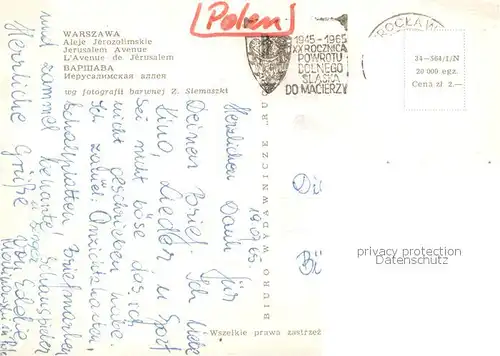 [Polen]
WARSZAWA
Aleje Jerozolimskie
Jerusalem Avenue
L'Avenue de Jérusalem
ВАРШАВА
Иерусалимская аллея
wg fotografii barwnej Z. Siemaszki
1945-1965
XX ROCZNICA
POWROTU
DOLNEGO
ŚLĄSKA
DO MACIERZY
ROCŁAW
34-564/I/N
20 000 egz.
Cena zł 2.—
BIURO WYDAWNICZE "RU
Wszelkie prawa zastrzeż
19.9.65.
Herzlichen Dank für
Deinen Brief. Ich liebe
Kino, Lieder u. Sport
Sei nicht böse das ich
nicht geschrieben habe.
Ich sammel: Ansichtskarten,
Schalplatten, Briefmarken
und sammel bekante Schauspieler
Herrliche Grüße von
privacy protection
watermark